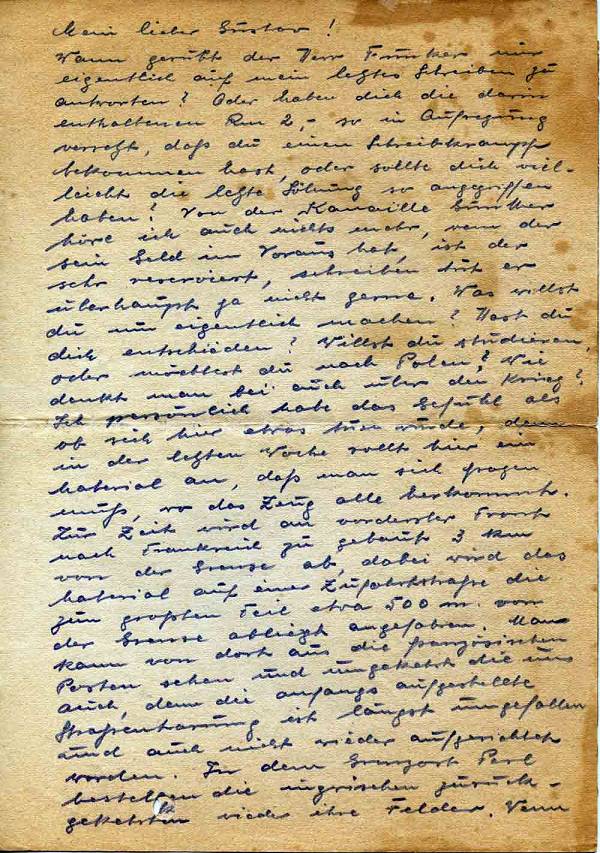 Mein lieber Gustav!
Wann geruht der Herr Funker nun
eigentlich auf mein letztes Schreiben zu
antworten? Oder haben dich die darin
enthaltenen Rm 2,- so in Aufregung
versetzt, daß du einen Schreibkrampf
bekommen hast, oder sollte dich viel-
leicht die letzte Löhnung so angegriffen
haben? Von der Kanaille Günther
höre ich auch nichts mehr, wenn der
sein Geld im Voraus hat, ist der
sehr reserviert, schreiben tut er
überhaupt ja nicht gerne. Was willst
du nun eigentlich machen? Hast du
dich entschieden? Willst du studieren,
oder möchtest du nach Polen? Wie
denkt man bei euch über den Krieg?
Ich persönlich habe das Gefühl als
ob sich hier etwas tuen würde, denn
in der letzten Woche rollt hier ein
Material an, daß man sich fragen
muß, wo das Zeug alle herkommt.
Zur Zeit wird an vorderster Front
nach Frankreich zu gebaut 3 km
von der Grenze ab, dabei wird das
Material auf einer Zufahrtstraße die
zum großten Teil etwa 500 m. von
der Grenze abliegt angefahren. Man
kann von dort aus die französischen
Posten sehen und umgekehrt die uns
auch, denn die anfangs aufgestellte
Straßentarnung ist längst umgefallen
und auch nicht wieder aufgerichtet
worden. In dem Grenzort Perl
bestellen die inzwischen zurück-
gekehrten wieder ihre Felder. Wenn